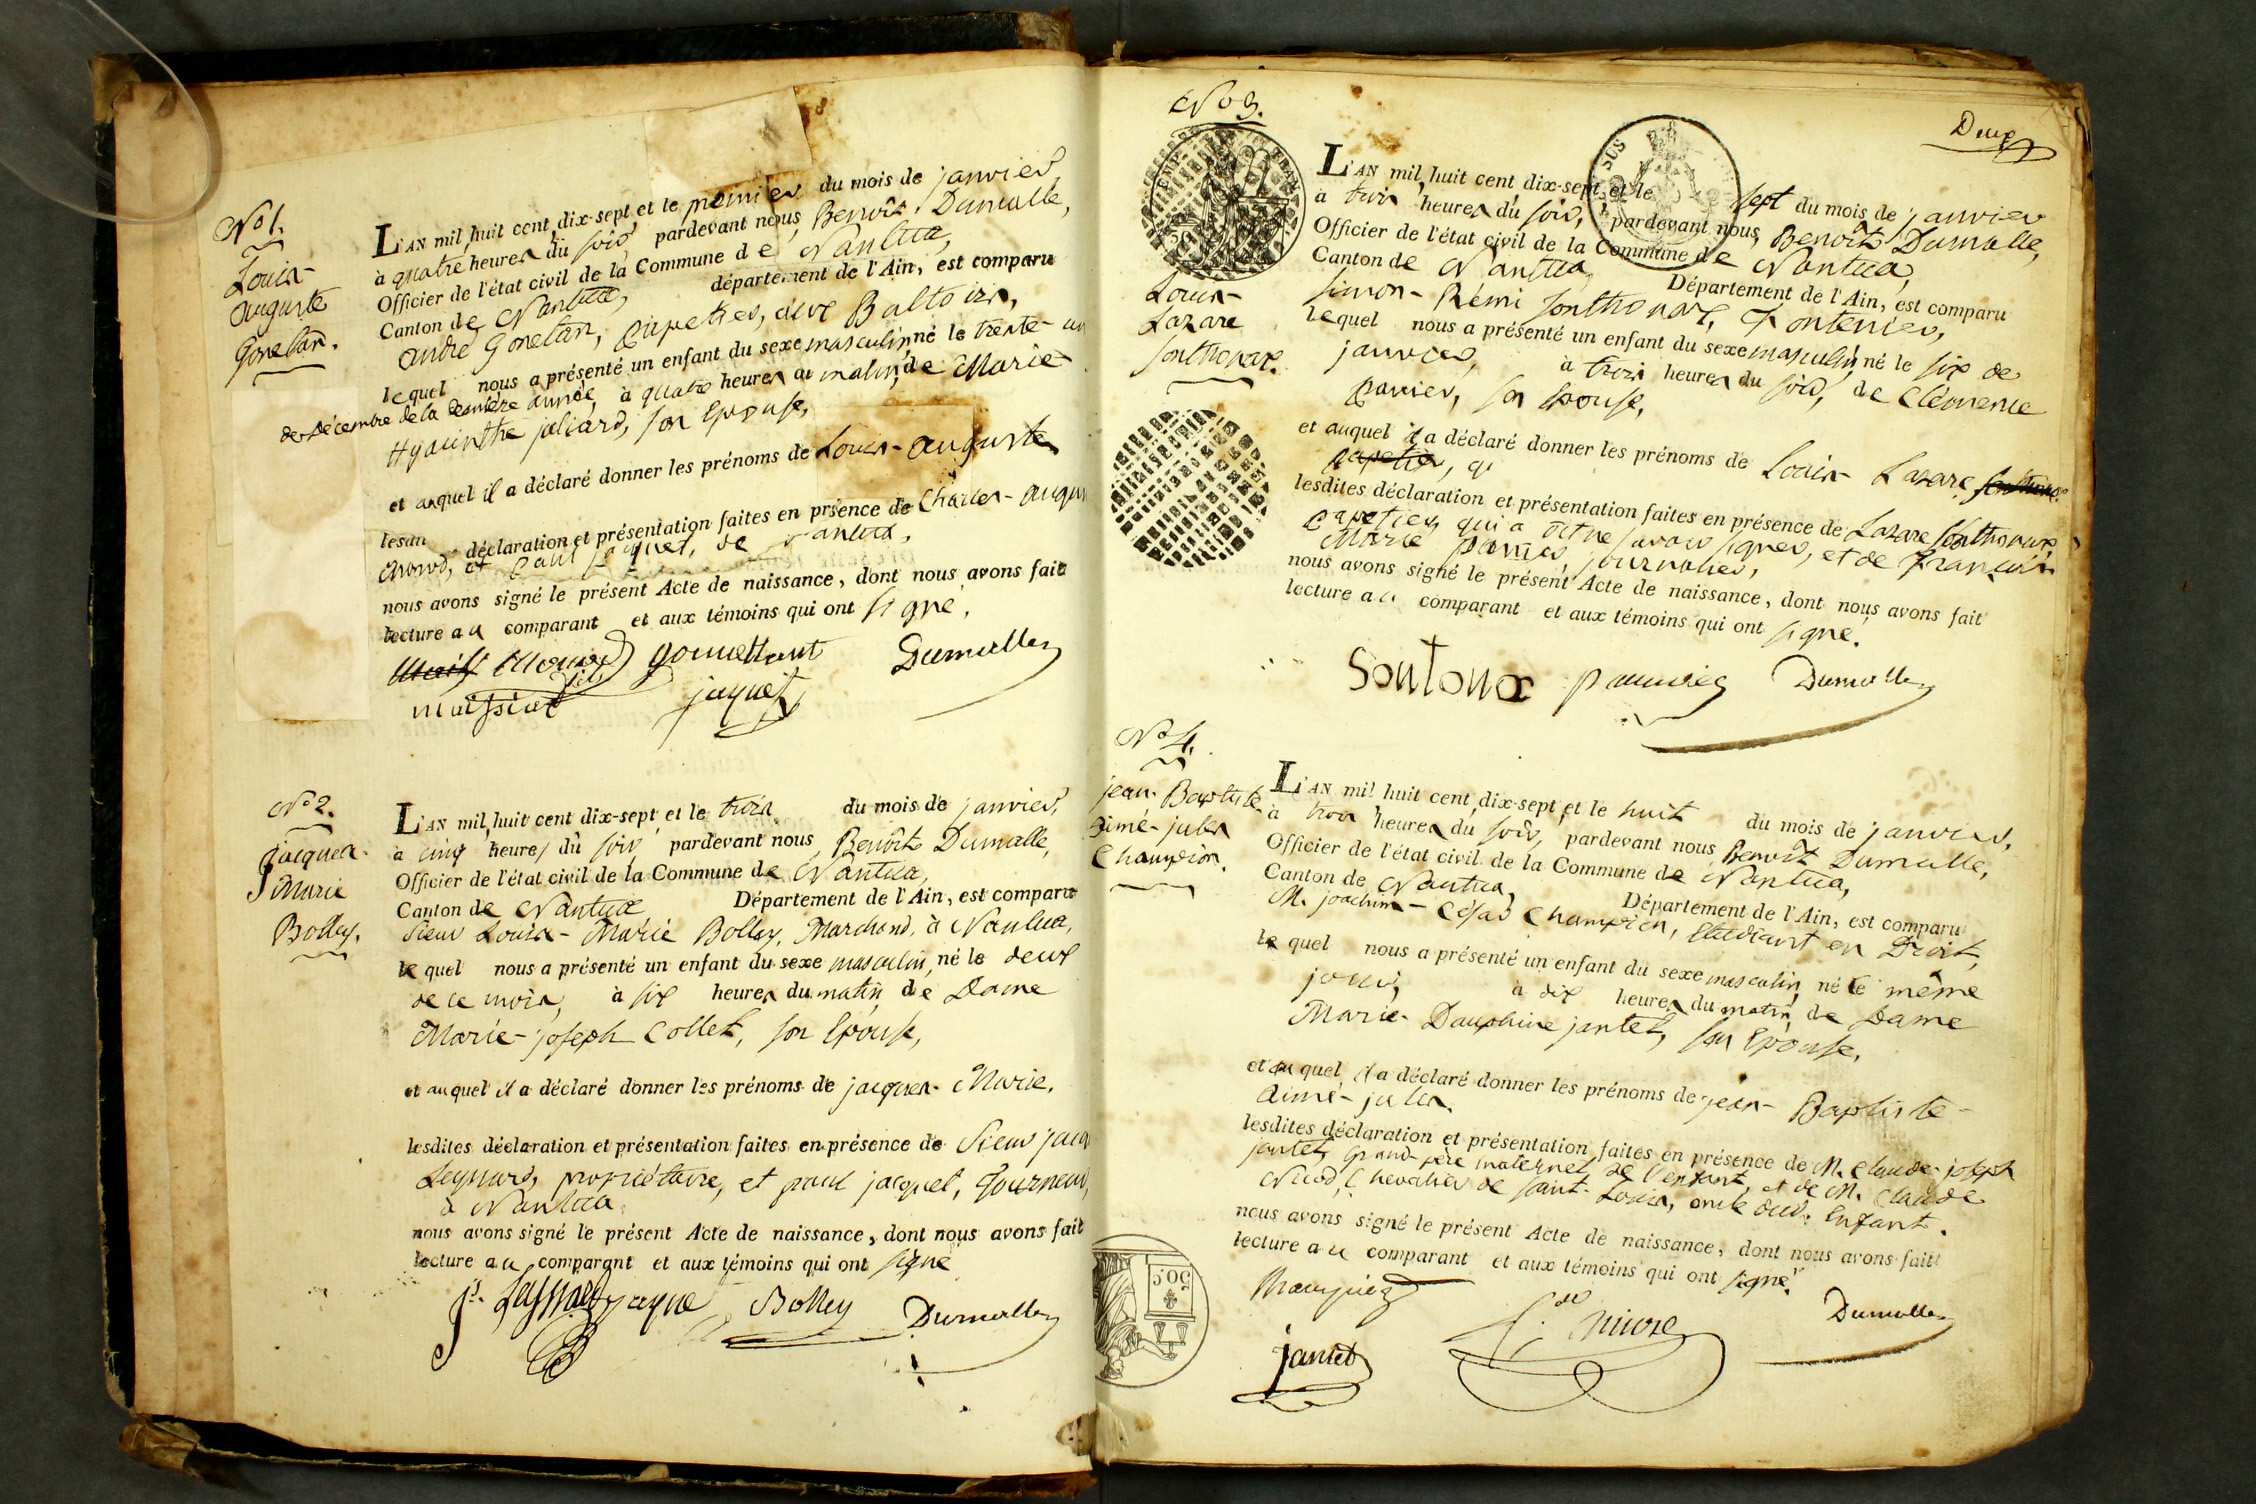 No 1.
Louis-
auguste
Gonetan.
L'AN mil huit cent dix-sept et le premier du mois de janvier
à quatre heures du soir pardevant nous Benoît Dumalle,
Officier de l'état civil de la Commune de Nantua,
Canton de Nantua, département de l'Ain, est comparu
andré Gonetan,
lequel nous a présenté un enfant du sexe masculin, né le trente-un
de décembre de la dernière année, à quatre heures au matin, de Marie
Hyacinthe juliard, son Epouse,
et auquel il a déclaré donner les prénoms de Louis-auguste
déclaration et présentation faites en présence de Charles-
et paul jaquet, de Nantua,
nous avons signé le présent Acte de naissance, dont nous avons fait
lecture au comparant et aux témoins qui ont signé.
gonettant Dumalle
maissiat jaquet
No 2.
jacques-
Marie
Bolley.
L'AN mil huit cent dix-sept et le trois du mois de janvier,
à cinq heures du soir pardevant nous Benoît Dumalle,
Officier de l'état civil de la Commune de Nantua,
Canton de Nantua Département de l'Ain, est comparu
Sieur Louis-Marie Bolley, Marchand, à Nantua,
lequel nous a présenté un enfant du sexe masculin, né le deux
de ce mois, à six heures du matin de Dame
Marie-joseph Collet, son Epouse,
et auquel il a déclaré donner les prénoms de jacques-Marie.
lesdites déclaration et présentation faites en présence de Sieur jacq
Leynard, propriétaire, et paul jacquet, Tourneur,
à Nantua
nous avons signé le présent Acte de naissance, dont nous avons fait
lecture au comparant et aux témoins qui ont signé
Bolley Dumalle
No 3.
Deux
Louis-
Lazare
Sonthonax.
L'AN mil huit cent dix-sept et le sept du mois de janvier
à trois heures du soir, pardevant nous, Benoît Dumalle,
Officier de l'état civil de la Commune de Nantua,
Canton de Nantua Département de l'Ain, est comparu
simon-Rémi Sonthonax,
lequel nous a présenté un enfant du sexe masculin, né le six de
janvier, à trois heures du soir, de Clémence
panier, son Epouse,
et auquel il a déclaré donner les prénoms de Louis-Lazare
lesdites déclaration et présentation faites en présence de Lazare Sonthonax,
qui a dit ne savoir signer, et de François
Marie panier, journalier,
nous avons signé le présent Acte de naissance, dont nous avons fait
lecture au comparant et aux témoins qui ont signé.
Sontonax Dumalle
No 4.
jean-Baptiste
aimé-jules
Champion.
L'AN mil huit cent dix-sept et le huit du mois de janvier,
à trois heures du soir, pardevant nous Benoît Dumalle,
Officier de l'état civil de la Commune de Nantua,
Canton de Nantua, Département de l'Ain, est comparu
M. joachim-César Champion, Etudiant en Droit,
lequel nous a présenté un enfant du sexe masculin, né le même
jour, à dix heures du matin, de Dame
Marie-Dauphine jantet, son Epouse,
et auquel il a déclaré donner les prénoms de jean-Baptiste-
aimé-jules.
lesdites déclaration et présentation faites en présence de M. Claude-joseph
jantet, Grand-père maternel de l'enfant, et de M. Claude
Chevalier de saint-Louis, oncle dud. Enfant.
nous avons signé le présent Acte de naissance, dont nous avons fait
lecture au comparant et aux témoins qui ont signé.
Dumalle
jantet
50 C